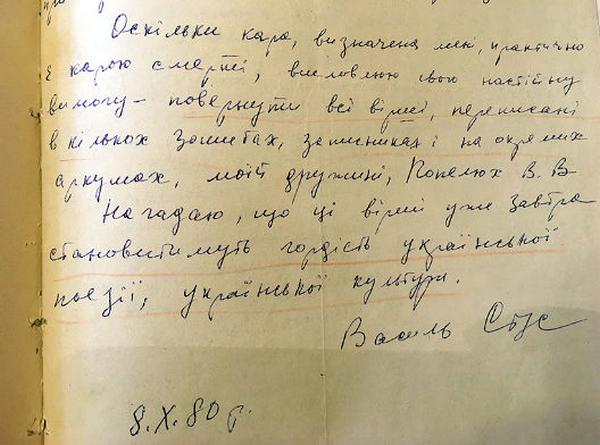 Оскільки кара, визначена мені, практично
є карою смерті, висловлюю свою настійну
вимогу — повернути всі вірші, переписані
в кількох зошитах, записниках і на окремих
аркушах, моїй дружині, Попелюх В. В.
Нагадаю, що ці вірші уже завтра
становитимуть гордість української
поезії, української культури.
Василь Стус
8.X.80 р.